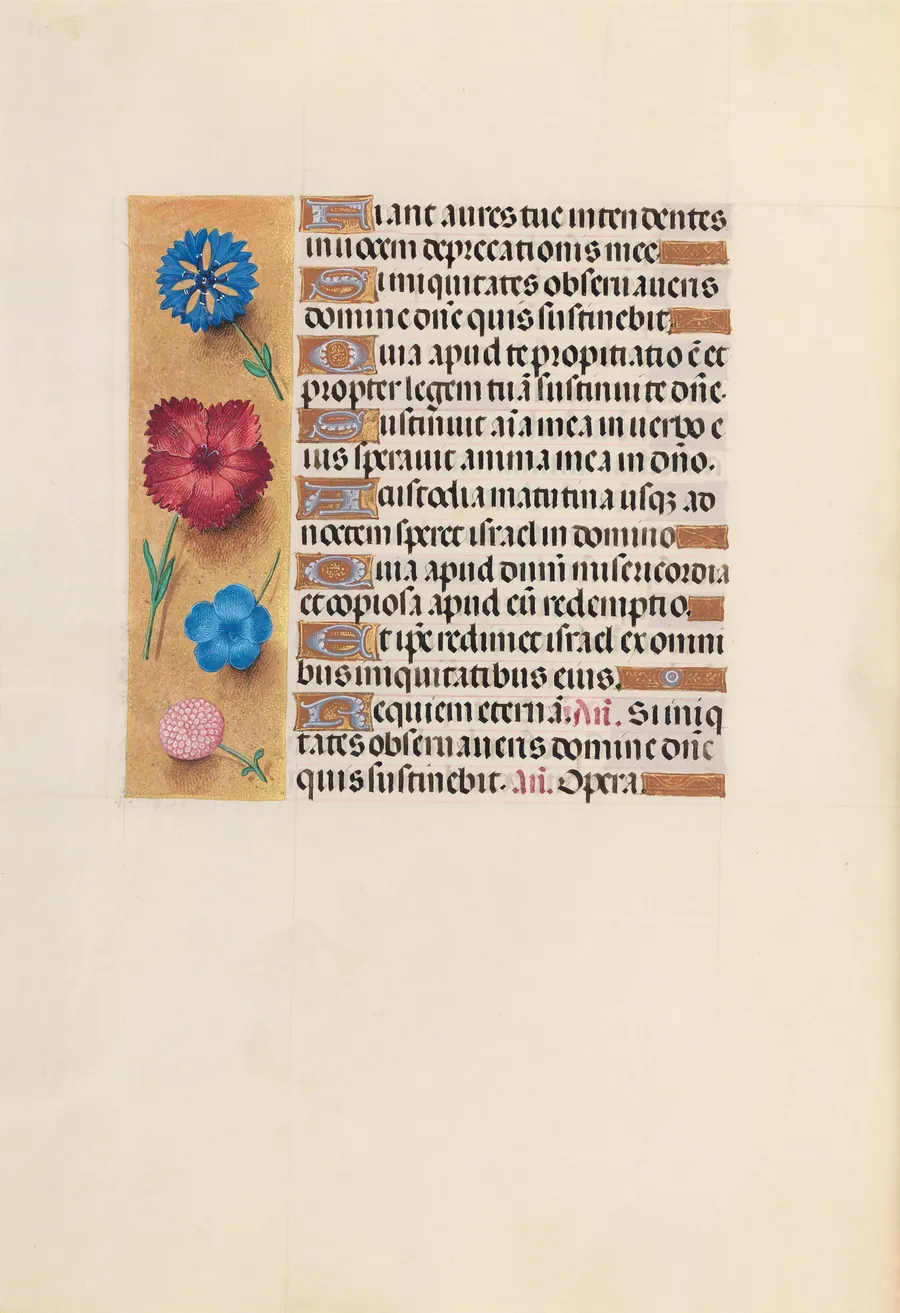 Fiant aures tue intendentes
in uocem deprecationis mee
Si iniquitates obseruaueris
domine dñe quis sustinebit.
Quia apud te propitiatio ē et
propter legem tuā sustinui te dñe.
Sustinuit aīa mea in uerbo e
ius sperauit anima mea in dño.
A custodia matutina usqꝫ ad
noctem speret israel in domino
Quia apud dnm̄ misericordia
et copiosa apud eū redemptio.
Et ipẽ redimet israel ex omni
bus iniquitatibus eius.
Requiem eternā. Añ. Si iniq
tates obseruaueris domine dñe
quis sustinebit. añ. Opera.